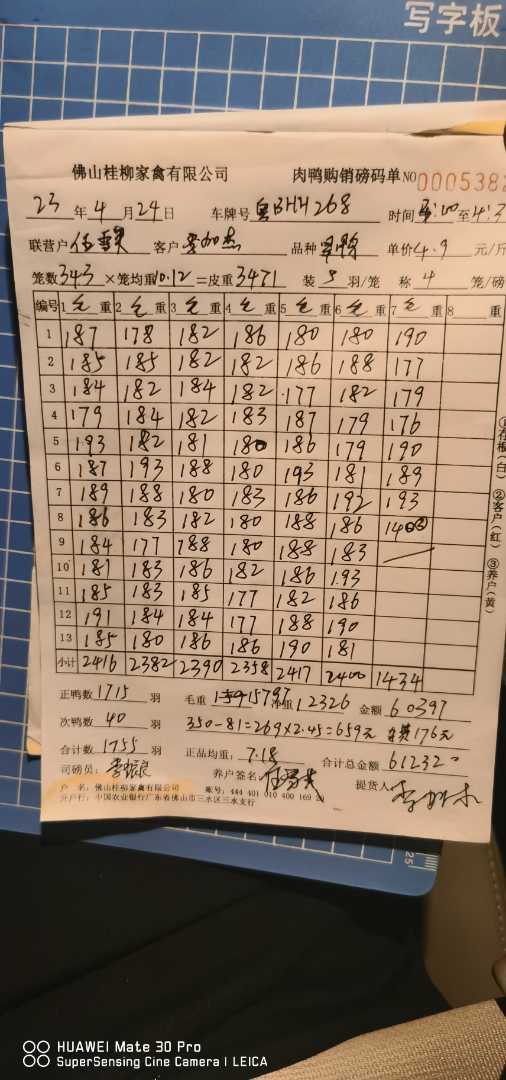 写字板
佛山桂柳家禽有限公司 肉鸭购销磅码单 NO 0005382
23 年 4 月 24 日 车牌号 粤BHH268 时间 至 4:3
联营户 客户 李加杰 品种 单价 4.9 元/斤
笼数 343 ×笼均重 10.12 =皮重 3471 装 5 羽/笼 称 4 笼/磅
编号 1 毛 重 2 毛 重 3 毛 重 4 毛 重 5 毛 重 6 毛 重 7 毛 重 8 重
1 187 178 182 186 180 180 190
2 185 185 182 182 186 188 177
3 184 182 184 182 177 182 179
4 179 184 182 183 187 179 176
5 193 182 181 180 186 179 190
6 187 193 188 180 193 181 189
7 189 188 180 183 186 192 193
8 186 183 182 180 188 186 140
9 184 177 188 180 188 183
10 181 183 186 182 186 193
11 185 183 185 177 182 186
12 191 184 184 177 188 190
13 185 180 186 186 190 181
小计 2416 2382 2390 2358 2417 2400 1434
①存根(白) ②客户(红) ③养户(黄)
正鸭数 1715 羽 毛重 15797 净重 12326 金额 60397
次鸭数 40 羽 350-81=269×2.45=659元 176元
合计数 1755 羽 正品均重: 7.18 合计总金额 61232
司磅员: 养户签名 提货人
户 名: 佛山桂柳家禽有限公司 账号: 444 401 010 400 169
开户行: 中国农业银行广东省佛山市三水区三水支行
25
HUAWEI Mate 30 Pro
SuperSensing Cine Camera | LEICA